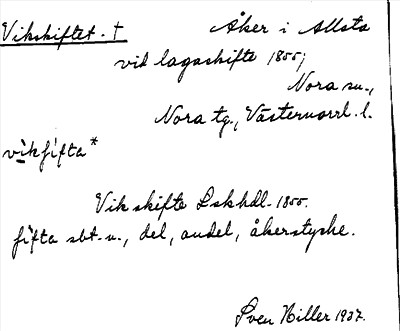 Vikskiftet. † Åker i Allsta
vid lagaskifte 1855;
Nora sn.,
Nora tg., Västernorrl. l.
vikfifta*
Vikskifte Lskhdl. 1855.
fifta sbt. n., del, andel, åkerstycke.
Sven Hiller 1937.